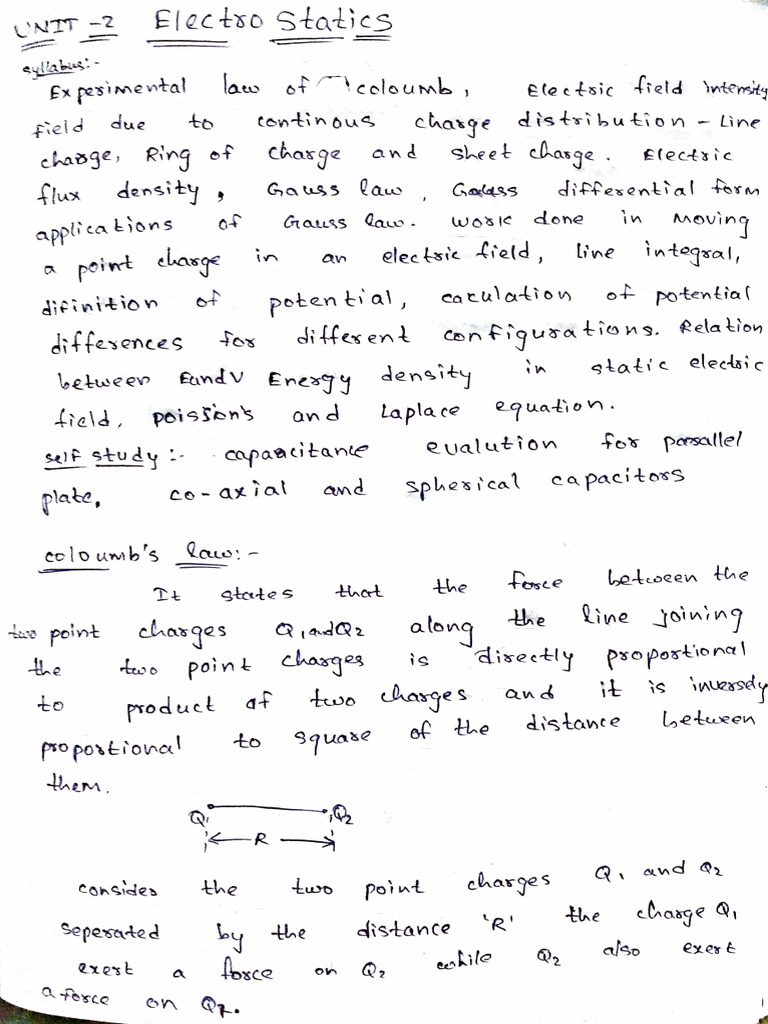 UNIT -2 Electro Statics
syllabus:-
Experimental law of coloumb, Electric field intensity
field due to continous charge distribution - Line
charge, Ring of charge and sheet charge. Electric
flux density, Gauss law, Gauss differential form
applications of Gauss law. Work done in moving
a point charge in an electric field, line integral,
difinition of potential, caculation of potential
differences for different configurations. Relation
between E and V Energy density in static electric
field, poission's and Laplace equation.
self study :- capacitance evalution for parallel
plate, co-axial and spherical capacitors
coloumb's law:-
It states that the force between the
two point charges Q1 and Q2 along the line joining
the two point charges is directly proportional
to product of two charges and it is inversely
proportional to square of the distance between
them.
Q1 Q2
R
consider the two point charges Q1 and Q2
seperated by the distance 'R' the charge Q1
exert a force on Q2 while Q2 also exert
a force on Q1.